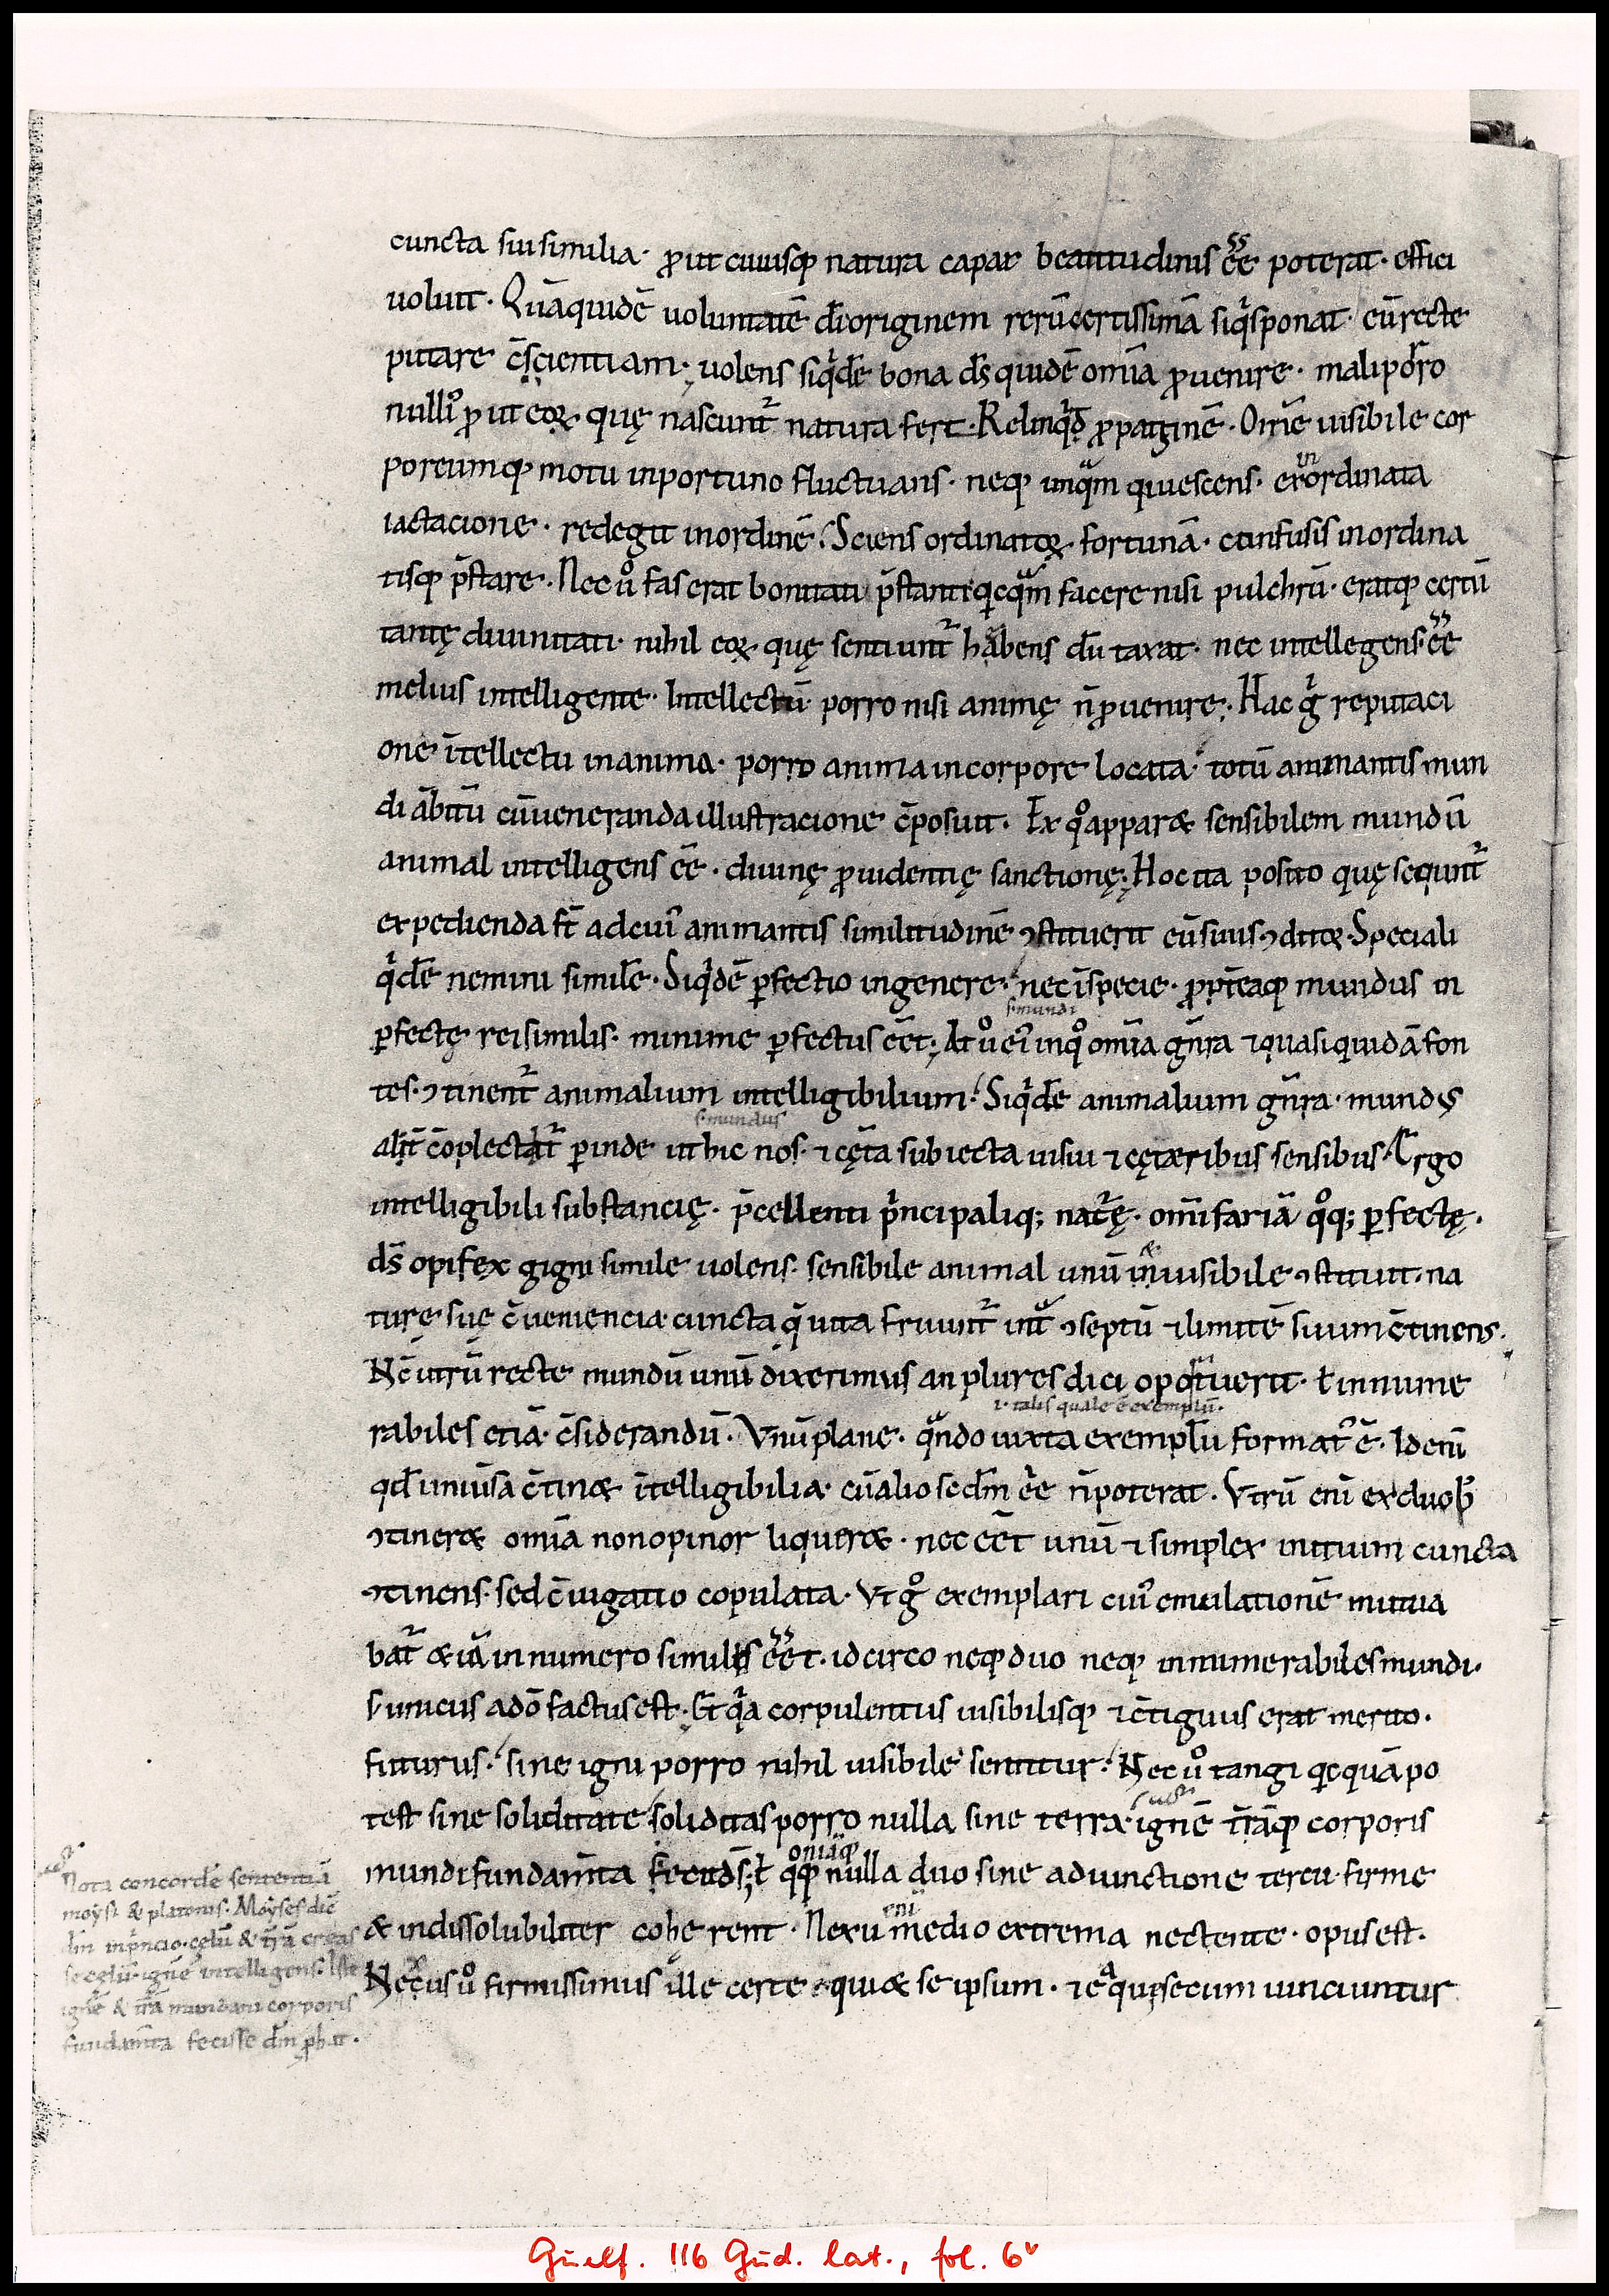 cuncta sui similia· ꝓut cuiusqꝫ natura capax beatitudinis ee̅ poterat· effici
uoluit· Qua̅ quide̅ uoluntate̅ di̅ originem reru̅ certissima̅ siqͥs ponat· eu̅ recte
putare c̅scientiam· uolens siqͥde̅ bona ds̅ quide̅ om̅ia ꝓuenire· mali porro
nulli ꝓ ut eoꝝ quę nascunt᷑ natura fert· Relinqͥ ꝓpagine̅· Om̅e uisibile cor
poreumqꝫ motu inportuno fluctuans· neqꝫ unqᷓm quiescens· ex inordinata
iactacione· redegit in ordine̅· Sciens ordinatoꝝ fortuna̅· confusis inordina
tisqꝫ p̅stare· Nec uͦ fas erat bonitati p̅stanti qicqᷓm facere nisi pulchru̅· eratqꝫ certu̅
tantę diuinitati· nihil eoꝝ quę sentiunt᷑ habens du̅taxat· nec intellegens· ee̅
melius intelligente· Intellectu̅ porro nisi animę n̅ ꝓuenire· Hac gͥ reputaci
one i̅tellectu in anima· porro anima in corpore locata· totu̅ animantis mun
di a̅bitu̅ cu̅ ueneranda illustracione c̅posuit· Ex qͦ apparet sensibilem mundu̅
animal intelligens ee̅· diuinę ꝓuidentię sanctionę· Hoc ita posito quę sequnt᷑
expedienda st̅ ad cuiꝰ animantis similitudine̅ ꝯstituerit eu̅ suus ꝯditoꝝ· Speciali
qͥde̅ nemini simile· Siqͥde̅ ꝑfectio in genere· nec i̅ specie· ꝓpt̅eaqꝫ mundus in
s· mundi
ꝑfectę rei similis· minime ꝑfectus e̅e̅t· At uͦ eiꝰ in qͦ om̅ia gn̅ra ⁊ quasi quida̅ fon
tes· ꝯtinent᷑ animalium intelligibilium· Siqͥde̅ animalium gn̅ra· mundꝰ
s· mundus
alit̅ co̅plectat᷑ ꝑinde ut hic nos· ⁊ cęt̅a subiecta uisui ⁊ cęteribus sensibus· Ergo
intelligibili substancię· p̅cellenti pͥncipaliqꝫ nat᷑ę· omnifaria̅ qͦqꝫ ꝑfectę·
ds̅ opifex gigni simile uolens· sensibile animal unu̅ & uisibile ꝯstituit· na
turę suę c̅ueniencia cuncta q̅ uita fruunt᷑ int̅ᷓ ꝯseptu̅ ⁊ limite̅ suum c̅tinens·
Nc̅ utru̅ recte mundu̅ unu̅ dixerimus an plures dici oportuerit· ł innume
i· talis quale e̅ exemplu̅·
rabiles etia̅· c̅siderandu̅· Vnu̅ plane· qᷓndo iuxta exemplu̅ formatꝰ e̅· Id eni̅
qd̅ uniu̅sa c̅tinet i̅telligibilia· cu̅ alio secd̅m ee̅ n̅ poterat· Vtru̅ eni̅ ex duobꝰ
ꝯtineret om̅ia non opinor liqueret· nec e̅e̅t unu̅ ⁊ simplex initium cuncta
ꝯtinens· sed c̅iugatio copulata· Vt gͦ exemplari cuiꝰ emulatione̅ mutua
bat᷑ etiᷓ in numero similis e̅e̅t· idcirco neqꝫ duo neqꝫ innumerabiles mundi·
s; unicus a do̅ factus est· Et qͥa corpulentus uisibilisqꝫ ⁊ c̅tiguus erat merito·
futurus· sine igni porro nihil uisibile sentitur· Nec uͦ tangi qicqua̅ po
test sine soliditate soliditas porro nulla sine terra· igne̅ t̅ra̅qꝫ corporis
mundi fundam̅ta fecit ds̅ qqꝫ nulla duo sine adiunctione tercii· firme
& indissolubiliter coherent· Nexu eni̅ medio extrema nectente· opus est·
Nexus uͦ firmissimus ille certe ⁊ qui & se ipsum· ⁊ ea quę secum uinciuntur
Nota concorde̅ sententia̅
moysi & platonis· Moyses dic̅
dm̅ in pͥncio· cęlu̅ & t̅ra̅ creas
se cęlu̅· igne̅ intelligens· Iste
igne̅ & t̅ra̅ mundani corporis
fundam̅ta fecisse dm̅ ꝓbat·
Guelf. 116 Gud. lat., fol. 6ᵛ